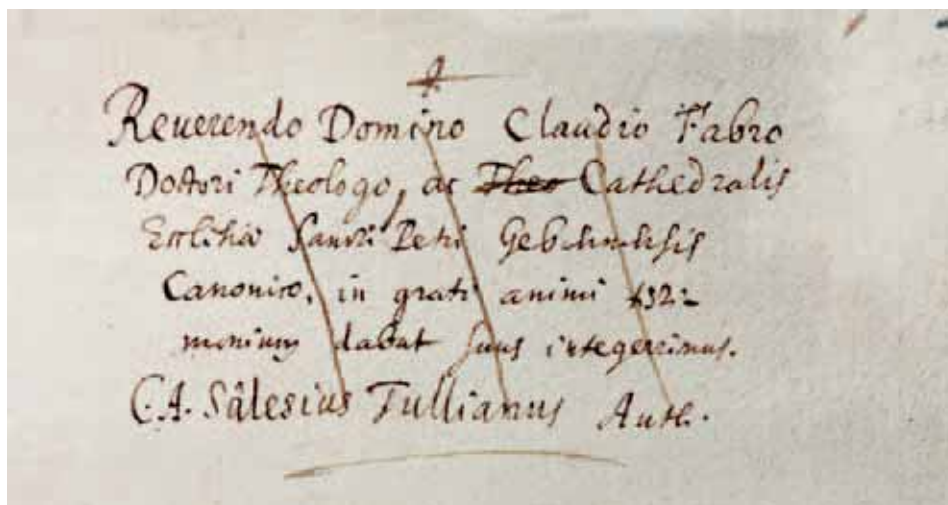 Reuerendo Domino Claudio Fabro
Doctori Theologo, ac Theo Cathedralis
Ecclesiæ Sancti Petri Gebennensis
Canonico, in grati animi testi:
monium dabat suus integerrimus.
C.A. Sâlesius Tullianus Auth.